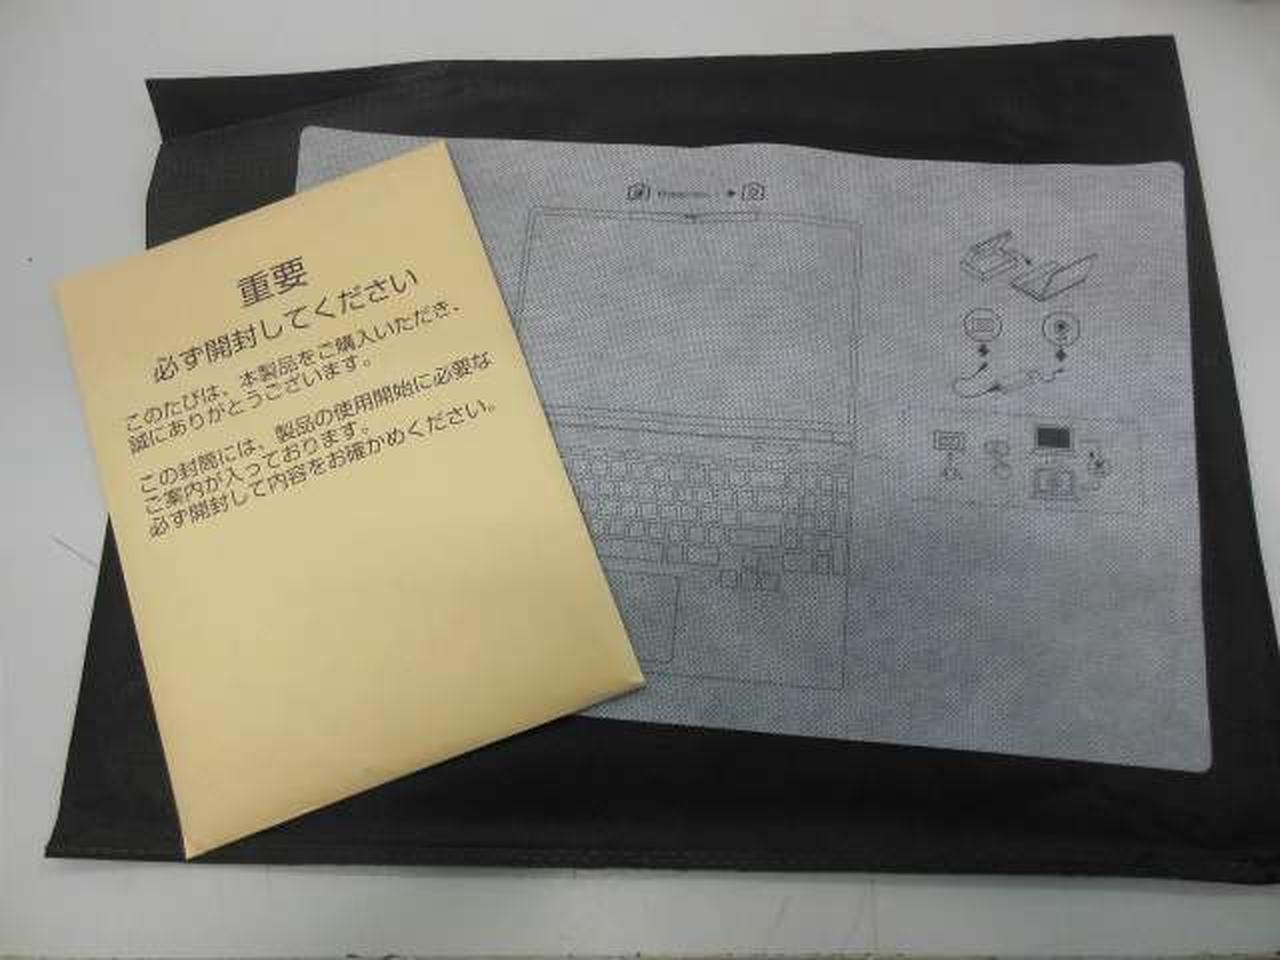 重要
必ず開封してください
このたびは、本製品をご購入いただき、
誠にありがとうございます。
この封筒には、製品の使用開始に必要な
ご案内が入っております。
必ず開封して内容をお確かめください。